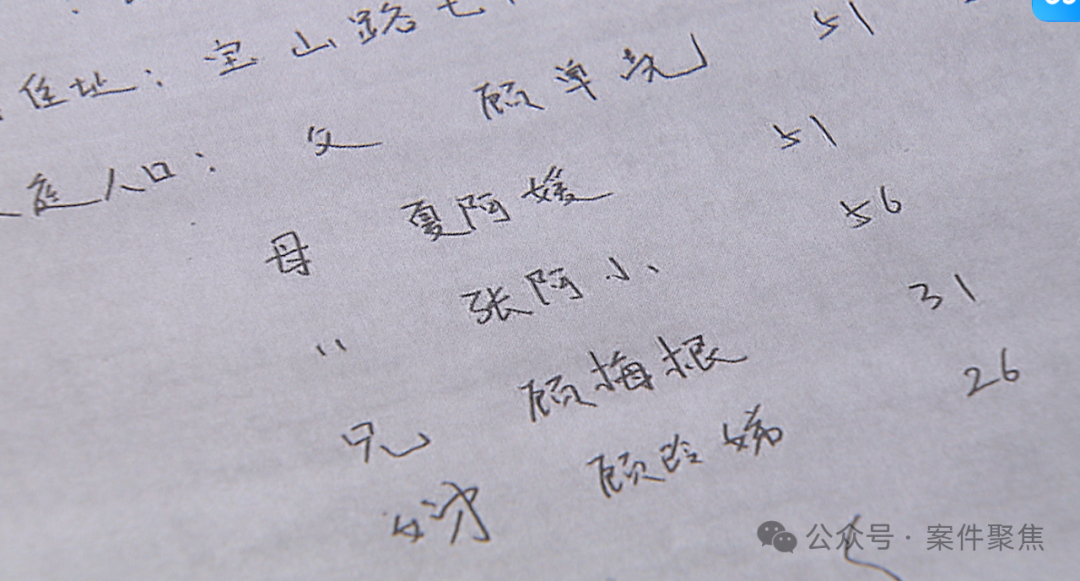 住址：宝山路七
庭人口：父 顾单尧 51
母 夏阿媛 51
〃 张阿小 56
兄 顾梅根 31
顾玲娣 26
公众号·案件聚焦